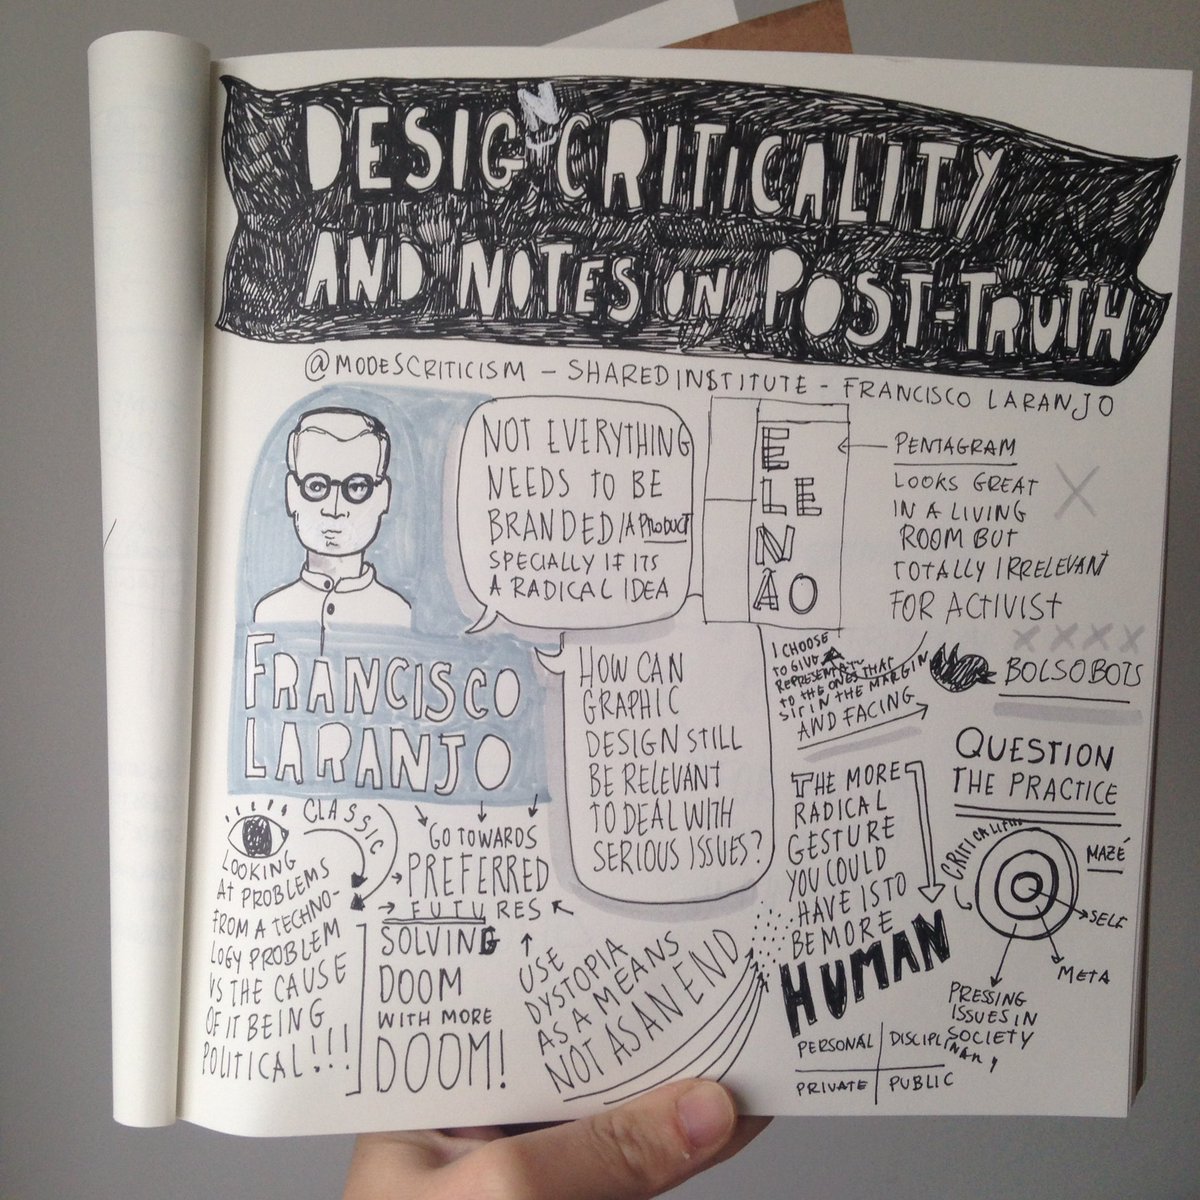 DESIGN CRITICALITY
AND NOTES ON POST-TRUTH
@MODESCRITICISM - SHAREDINSTITUTE - FRANCISCO LARANJO
NOT EVERYTHING
NEEDS TO BE
BRANDED/A PRODUCT
SPECIALLY IF ITS
A RADICAL IDEA
E
LE
N
ÃO
PENTAGRAM
LOOKS GREAT
IN A LIVING
ROOM BUT
TOTALLY IRRELEVANT
FOR ACTIVIST
FRANCISCO
LARANJO
HOW CAN
GRAPHIC
DESIGN STILL
BE RELEVANT
TO DEAL WITH
SERIOUS ISSUES?
I CHOOSE
TO GIVE A
TO THE ONES THAT
SIT IN THE MARGIN
AND FACING
XXXX
BOLSOBOTS
QUESTION
THE PRACTICE
CLASSIC
LOOKING
AT PROBLEMS
FROM A TECHNO-
LOGY PROBLEM
VS THE CAUSE
OF IT BEING
POLITICAL!!!
GO TOWARDS
PREFERRED
FUTURES
SOLVING
DOOM
WITH MORE
DOOM!
USE
DYSTOPIA
AS A MEANS
NOT AS AN END
THE MORE
RADICAL
GESTURE
YOU COULD
HAVE IS TO
BE MORE
HUMAN
PERSONAL DISCIPLINARY
PRIVATE PUBLIC
MAZÉ
SELF
META
PRESSING
ISSUES IN
SOCIETY